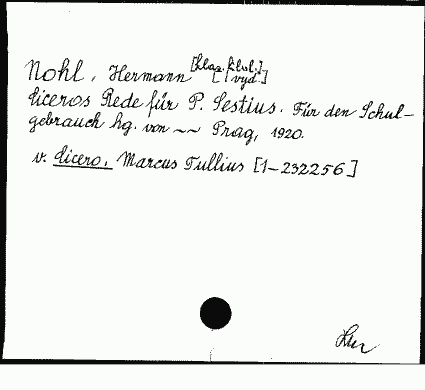 Nohl, Hermann [klas. filol.]
[vyd.]
Ciceros Rede für P. Sestius. Für den Schul-
gebrauch hg. von ~~ Prag, 1920.
v. Cicero, Marcus Tullius [1-232256]